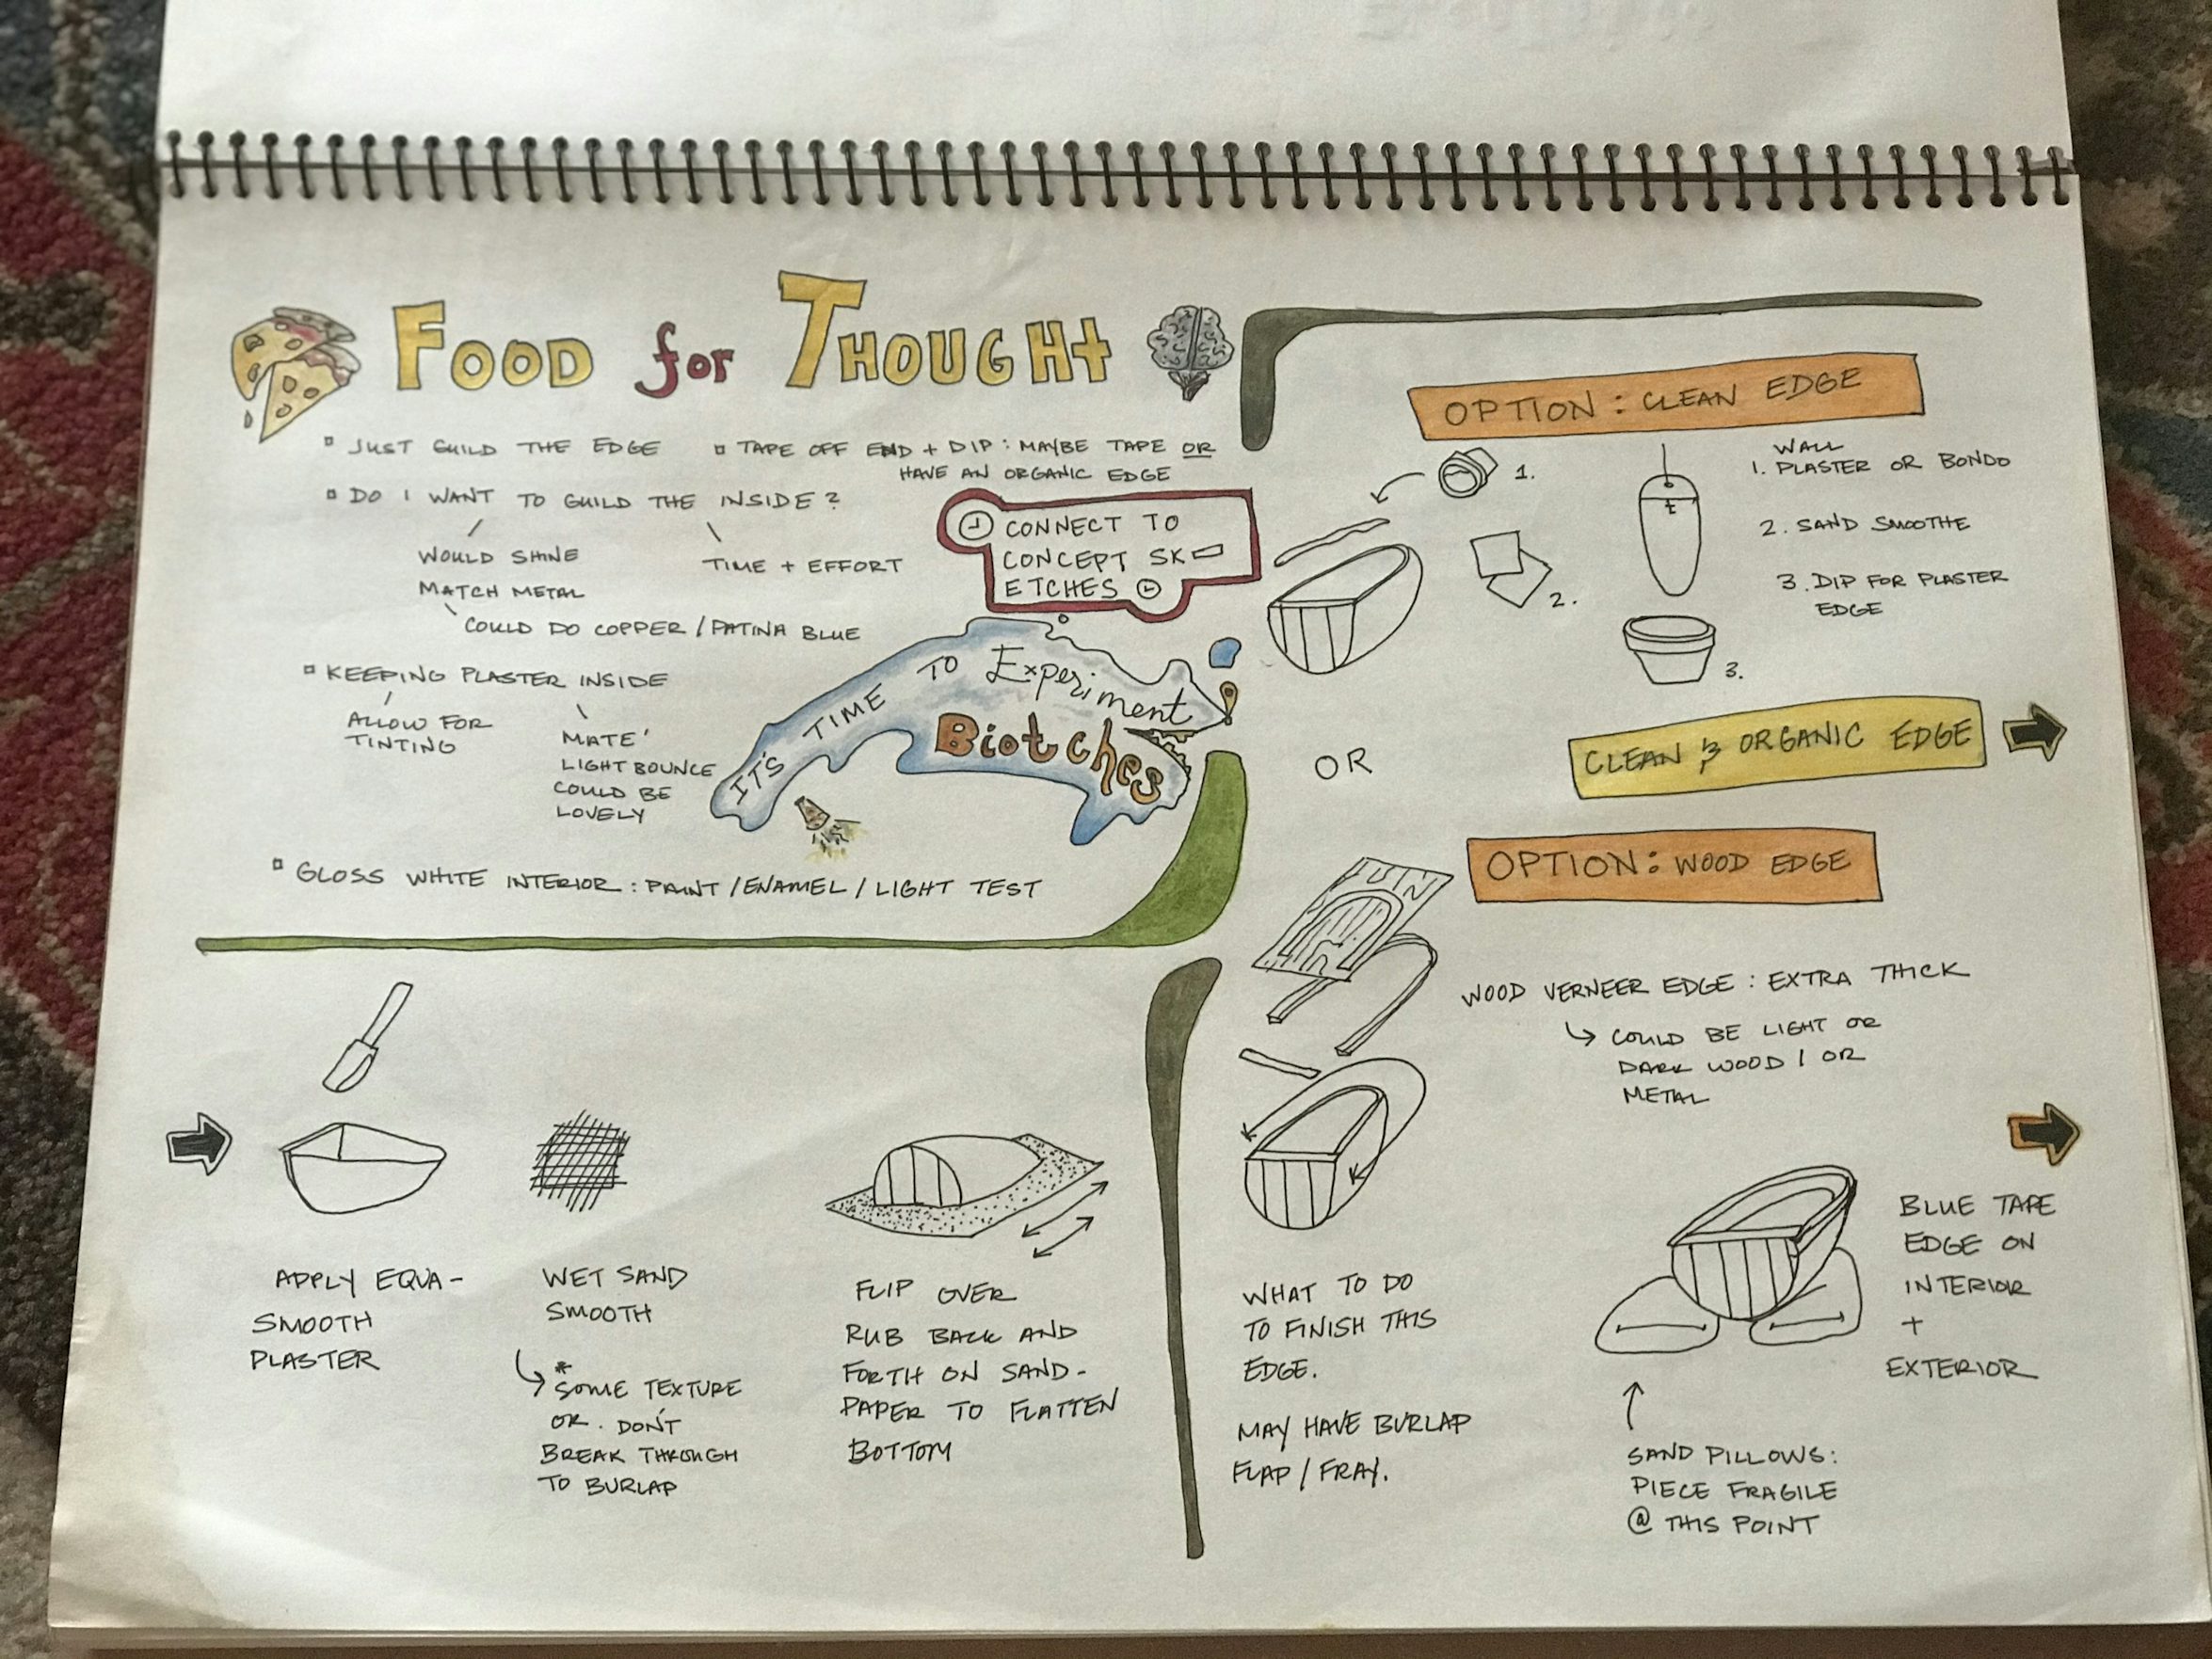 FOOD for THOUGHt
▫ JUST GUILD THE EDGE
▫ TAPE OFF END + DIP : MAYBE TAPE OR
HAVE AN ORGANIC EDGE
▫ DO I WANT TO GUILD THE INSIDE ?
WOULD SHINE
MATCH METAL
COULD DO COPPER / PATINA BLUE
TIME + EFFORT
CONNECT TO
CONCEPT SK
ETCHES
▫ KEEPING PLASTER INSIDE
ALLOW FOR
TINTING
MATE'
LIGHT BOUNCE
COULD BE
LOVELY
IT'S TIME TO Experiment
Biotches
▫ GLOSS WHITE INTERIOR : PAINT / ENAMEL / LIGHT TEST
OPTION : CLEAN EDGE
1.
2.
3.
WALL
1. PLASTER OR BONDO
2. SAND SMOOTHE
3. DIP FOR PLASTER
EDGE
OR
CLEAN & ORGANIC EDGE
OPTION : WOOD EDGE
WOOD VERNEER EDGE : EXTRA THICK
COULD BE LIGHT OR
DARK WOOD / OR
METAL
APPLY EQUA-
SMOOTH
PLASTER
WET SAND
SMOOTH
*
SOME TEXTURE
OR. DON'T
BREAK THROUGH
TO BURLAP
FLIP OVER
RUB BACK AND
FORTH ON SAND-
PAPER TO FLATTEN
BOTTOM
WHAT TO DO
TO FINISH THIS
EDGE.
MAY HAVE BURLAP
FLAP / FRAY.
BLUE TAPE
EDGE ON
INTERIOR
+
EXTERIOR
SAND PILLOWS:
PIECE FRAGILE
@ THIS POINT